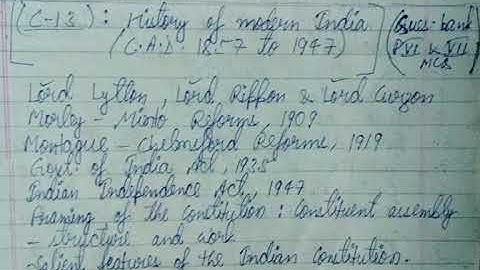 (C-13) : History of modern India
(C.A.D. 1857 to 1947)
(Ques-bank
PVI & VII
MCQ
Lord Lytton, Lord Riffon & Lord Curzon
Morley - Minto Reforms, 1909
Montague - Chelmsford Reforms, 1919
Govt. of India Act, 1935
Indian Independence Act, 1947
Framing of the constitution : Constituent assembly
- structure and work
- Salient features of the Indian Constitution.